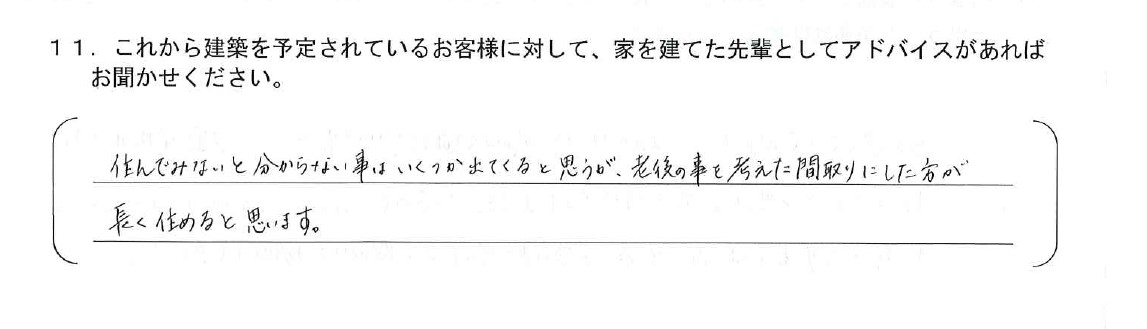 11．これから建築を予定されているお客様に対して、家を建てた先輩としてアドバイスがあれば
お聞かせください。
住んでみないと分からない事はいくつか出てくると思うが、老後の事を考えた間取りにした方が
長く住めると思います。